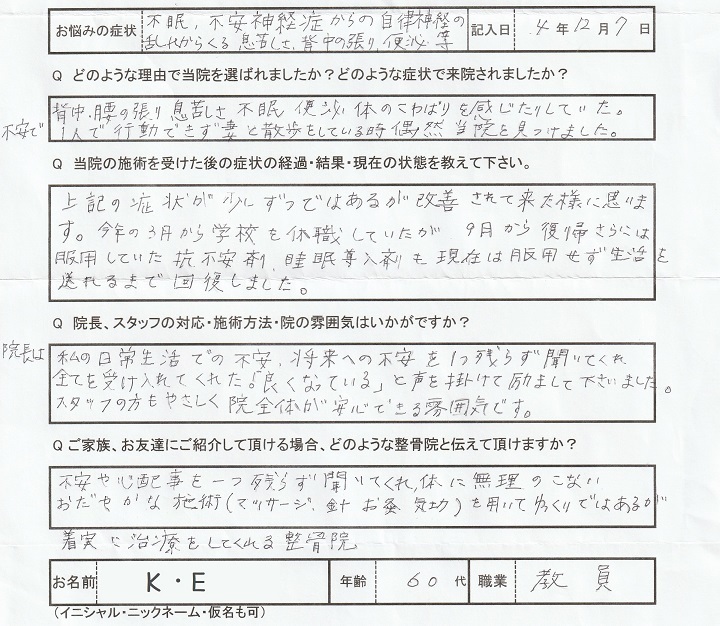 お悩みの症状 不眠、不安神経症からの自律神経の
乱れからくる息苦しさ、背中の張り、便泌 等
記入日 4年12月7日
Q どのような理由で当院を選ばれましたか？どのような症状で来院されましたか？
背中・腰の張り 息苦しさ 不眠 便泌 体のこわばりを感じたりしていた。
不安で 1人で行動できず妻と散歩をしている時偶然 当院を見つけました。
Q 当院の施術を受けた後の症状の経過・結果・現在の状態を教えて下さい。
上記の症状が少しずつではあるが改善されて来た様に思いま
す。今年の3月から学校を休職していたが 9月から復帰さらには
服用していた抗不安剤、睡眠導入剤も現在は服用せず生活を
送れるまで回復しました。
Q 院長、スタッフの対応・施術方法・院の雰囲気はいかがですか？
院長は 私の日常生活での不安、将来への不安を1つ残らず聞いてくれ
全てを受け入れてくれた。「良くなっている」と声を掛けて励まして下さいました。
スタッフの方もやさしく院全体が安心できる雰囲気です。
Q ご家族、お友達にご紹介して頂ける場合、どのような整骨院と伝えて頂けますか？
不安や心配事を一つ残らず聞いてくれ、体に無理のこない
おだやかな施術(マッサージ、針 お灸 気功)を用いてゆっくりではあるが
着実に治療をしてくれる整骨院
お名前 K・E 年齢 60代 職業 教員
(イニシャル・ニックネーム・仮名も可)